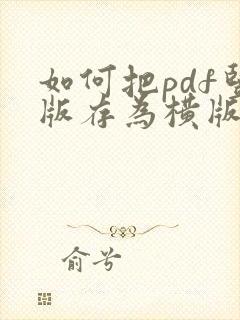 如何把pdf竖
版存为横版
俞兮